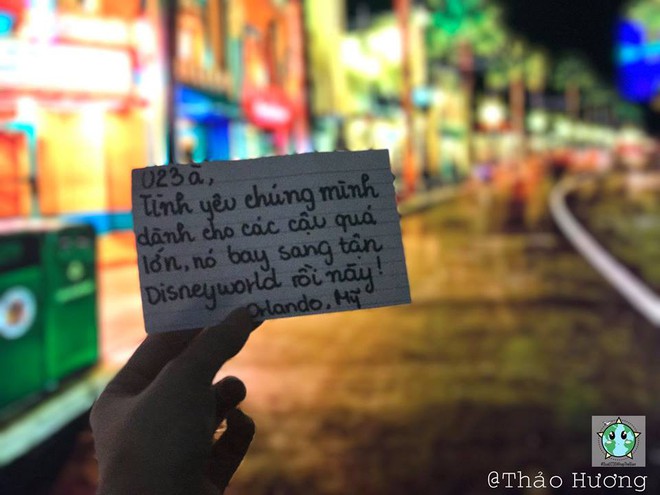 U23 ã,
Tình yêu chúng mình
dành cho các cậu quá
lớn, nó bay sang tận
Disneyworld rồi này!
Orlando, Mỹ
@Thảo Hương